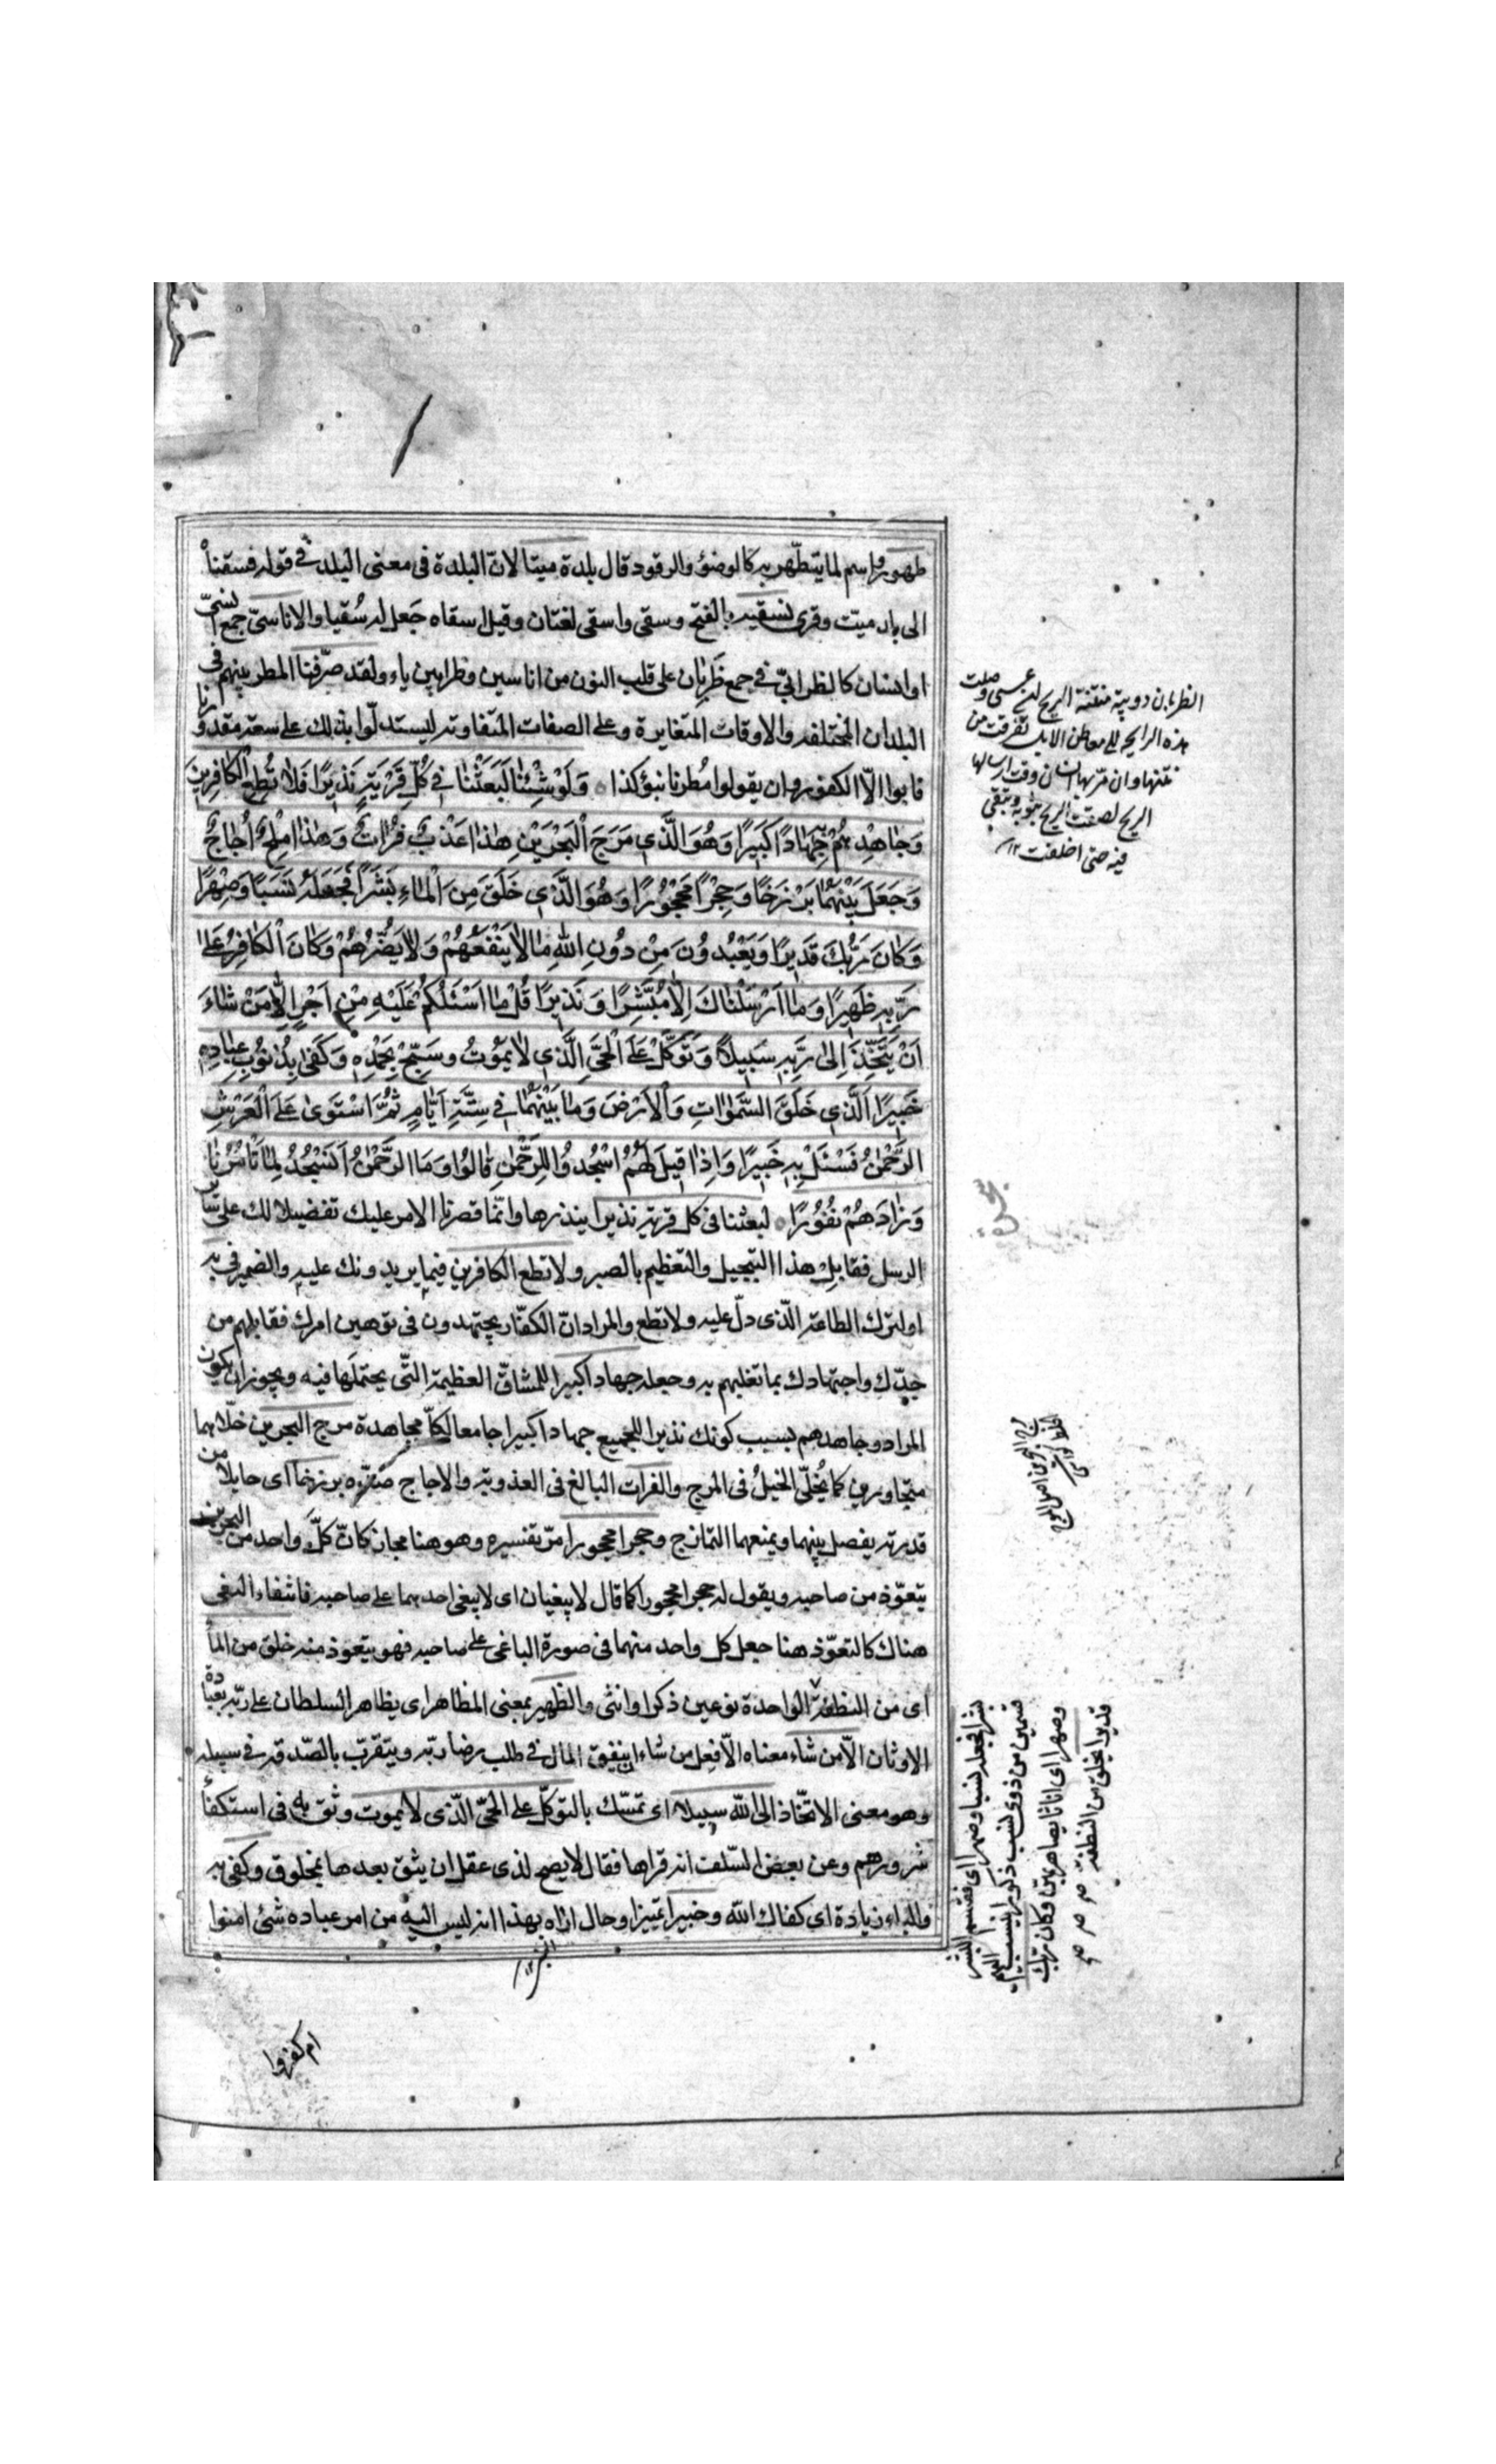 طهور واسم لما يتطهّر به كالوضؤ والوقود قال بلدة ميتا لانّ البلدة فى معنى البلد فى قوله فسقناه
الى بلد ميت وقرى نسقيه بالفتح وسقى واسقى لغتان وقيل اسقاه جَعل له سُقيا والاناسىّ جمع انسىّ
او انسان كالظرابىّ فى جمع ظَرِبان على قلب النون من اناسين وظرابين ياء ولقد صرّفنا المطر بينهم فى
البلدان المختلفه والاوقات المتغايرة وعلى الصفات المتفاوته ليستدلّوا بذلك على سعة مقدورنا
فابوا الّا الكفور وان يقولوا مُطرنا بنؤ كذا وَلَوْ شِئْنٰا لَبَعَثْنٰا فِى كُلِّ قَرْيَةٍ نَذِيرًا فَلٰا تُطِعِ الْكٰافِرِينَ
وَجٰاهِدْهُمْ بِهِ جِهٰادًا كَبِيرًا وَهُوَ الَّذِى مَرَجَ الْبَحْرَيْنِ هٰذٰا عَذْبٌ فُرٰاتٌ وَهٰذٰا مِلْحٌ أُجٰاجٌ
وَجَعَلَ بَيْنَهُمٰا بَرْزَخًا وَحِجْرًا مَحْجُورًا وَهُوَ الَّذِى خَلَقَ مِنَ الْمٰاءِ بَشَرًا فَجَعَلَهُ نَسَبًا وَصِهْرًا
وَكٰانَ رَبُّكَ قَدِيرًا وَيَعْبُدُونَ مِنْ دُونِ اللّٰهِ مٰا لٰا يَنْفَعُهُمْ وَلٰا يَضُرُّهُمْ وَكٰانَ الْكٰافِرُ عَلىٰ
رَبِّهِ ظَهِيرًا وَمٰا اَرْسَلْنٰاكَ اِلّٰا مُبَشِّرًا وَنَذِيرًا قُلْ مٰا اَسْئَلُكُمْ عَلَيْهِ مِنْ اَجْرٍ اِلّٰا مَنْ شٰاءَ
اَنْ يَتَّخِذَ اِلىٰ رَبِّهِ سَبِيلًا وَتَوَكَّلْ عَلَى الْحَىِّ الَّذِى لٰا يَمُوتُ وَسَبِّحْ بِحَمْدِهِ وَكَفىٰ بِهِ بِذُنُوبِ عِبٰادِهِ
خَبِيرًا الَّذِى خَلَقَ السَّمٰوٰاتِ وَالْاَرْضَ وَمٰا بَيْنَهُمٰا فِى سِتَّةِ اَيّٰامٍ ثُمَّ اسْتَوىٰ عَلَى الْعَرْشِ
الرَّحْمٰنُ فَسْئَلْ بِهِ خَبِيرًا وَاِذٰا قِيلَ لَهُمُ اسْجُدُوا لِلرَّحْمٰنِ قٰالُوا وَمَا الرَّحْمٰنُ اَنَسْجُدُ لِمٰا تَاْمُرُنٰا
وَزٰادَهُمْ نُفُورًا لبعثنا فى كل قرية نذيرا ينذرها وانّما قصرنا الامر عليك تفضيلا لك على سائر
الرسل فقابِل هذا التبجيل والتعظيم بالصبر ولا تطع الكافرين فيما يريدونك عليه والضمير فى به
او لترك الطاعة الّذى دلّ عليه ولا تطع والمراد انّ الكفّار يجتهدون فى توهين امرك فقابلهم من
جدّك واجتهادك بما تغلبهم به وجعله جهادا كبيرا للمشاقّ العظيمة التّى يحتملها فيه ويجوز ان يكون
المراد وجاهدهم بسبب كونك نذيرا للجميع جهادا كبيرا جامعا لكلّ مجاهدة مرج البحرين خلّاهما
متجاورين كما يُخلّى الخيلُ فى المرج والفرات البالغ فى العذوبة والاجاج ضدّه برزخا اى حايلا من
قدرته يفصل بينهما ويمنعهما التمازج وحجرا محجورا مرّ تفسيره وهو هنا مجاز كانّ كلّ واحد من البحرين
يتعوّذ من صاحبه ويقول له حجرا محجورا كما قال لا يبغيان اى لا يبغى احدهما على صاحبه فانتفاء البغى
هناك كالتعوّذ هنا جعل كل واحد منهما فى صورة الباغى على صاحبه فهو يتعوذ منه خلق من الماء
اى من النطفة الواحدة نوعين ذكرا وانثى والظهير بمعنى المظاهر اى يظاهر السلطان على ربّه بعبادة
الاوثان الّا من شاء معناه الّا فعل من شاء ان ينفق المال فى طلب رضا ربّه ويتقرّب بالصّدقه فى سبيله
وهو معنى الاتّخاذ الى اللّه سبيلا اى تمسّك بالتوكّل على الحىّ الّذى لا يموت وثق به فى استكفاء
شرورهم وعن بعض السّلف انه قراها فقال لا يصح لذى عقل ان يثق بعدها بمخلوق وكفى به
والباء زيادة اى كفاك اللّه وخبيرا تمييز او حال اراد بهذا انه ليس اليه من امر عباده شئ امنوا
ام كفروا
الظربان دويبة منتنة الريح
هذه الرايحة الى معاطن الابل تفرقت من
نتنها وان مرّ بها انسان وقت ارسالها
الريح لصقت الريح بثوبه وتبقى
فيه حتى اخلقت ١٢
بشرا فجعله نسبا وصهرا اى فقسم البشر
قسمين من ذوى نسب ذكورا ينسب اليهم
وصهرا اى اناثا يصاهر بهنّ وكان ربك
قديرا يخلق من النطفة